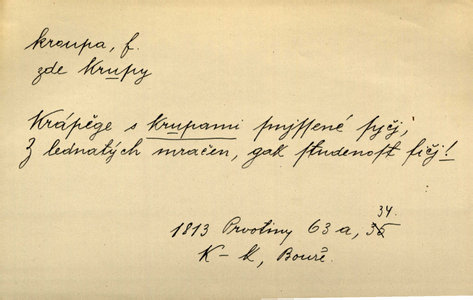 kroupa, f.
zde Krupy
Krápěge s krupami smjssené sycj;
Z lednatých mračen, gak studenost ficj!
34.
1813 Prvotiny 63 a, 35
K–k, Bouře.